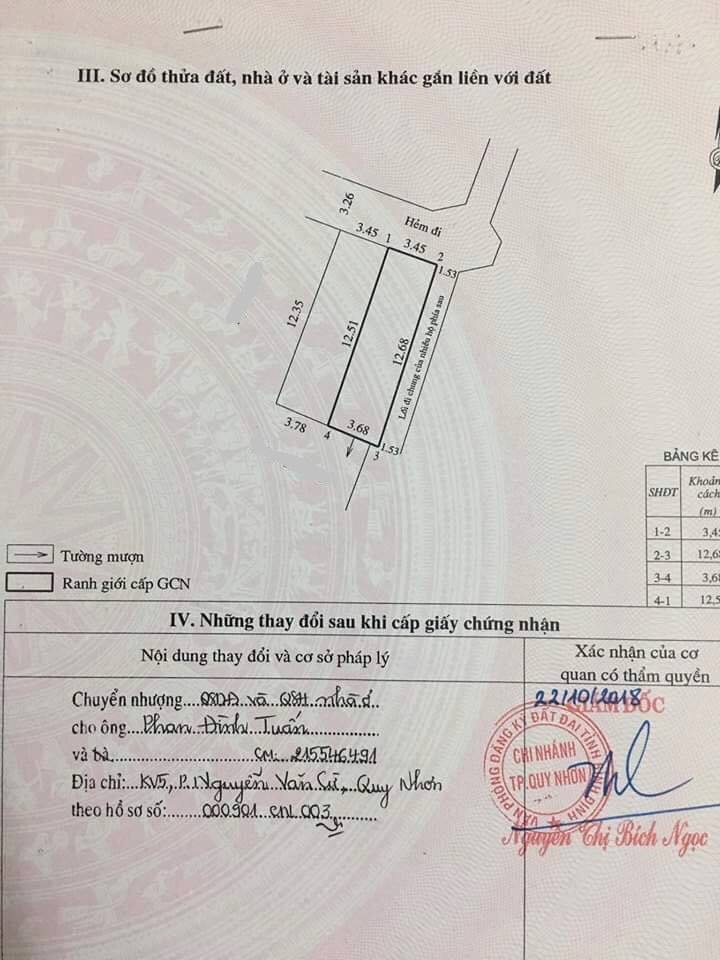 III. Sơ đồ thửa đất, nhà ở và tài sản khác gắn liền với đất
3.26
Hẻm đi
3.45
1
3.45
2
1.53
12.35
12.51
12.68
Lối đi chung của nhiều hộ phía sau
3.78
4
3.68
3
1.53
BẢNG KÊ
SHĐT
Khoản
cách
(m)
1-2
3,45
2-3
12,68
3-4
3,68
4-1
12,5
Tường mượn
Ranh giới cấp GCN
IV. Những thay đổi sau khi cấp giấy chứng nhận
Nội dung thay đổi và cơ sở pháp lý
Xác nhận của cơ
quan có thẩm quyền
Chuyển nhượng....QSDĐ và QSH nhà ở
cho ông..Phan Đình Tuấn
và bà.................CM: 215546491
Địa chỉ:..KV5, P. Nguyễn Văn Cừ, Quy Nhơn
theo hồ sơ số:......000901 CNL 003
22/10/2018
GIÁM ĐỐC
VĂN PHÒNG ĐĂNG KÝ ĐẤT ĐAI TỈNH BÌNH ĐỊNH
CHI NHÁNH
TP.QUY NHƠN
Nguyễn Thị Bích Ngọc